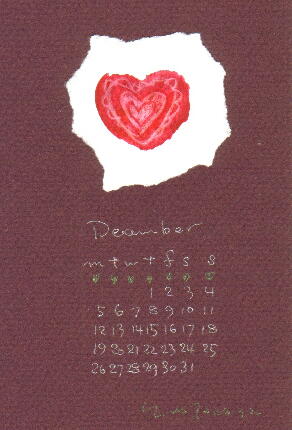 December
m t w t f s s
1 2 3 4
5 6 7 8 9 10 11
12 13 14 15 16 17 18
19 20 21 22 23 24 25
26 27 28 29 30 31